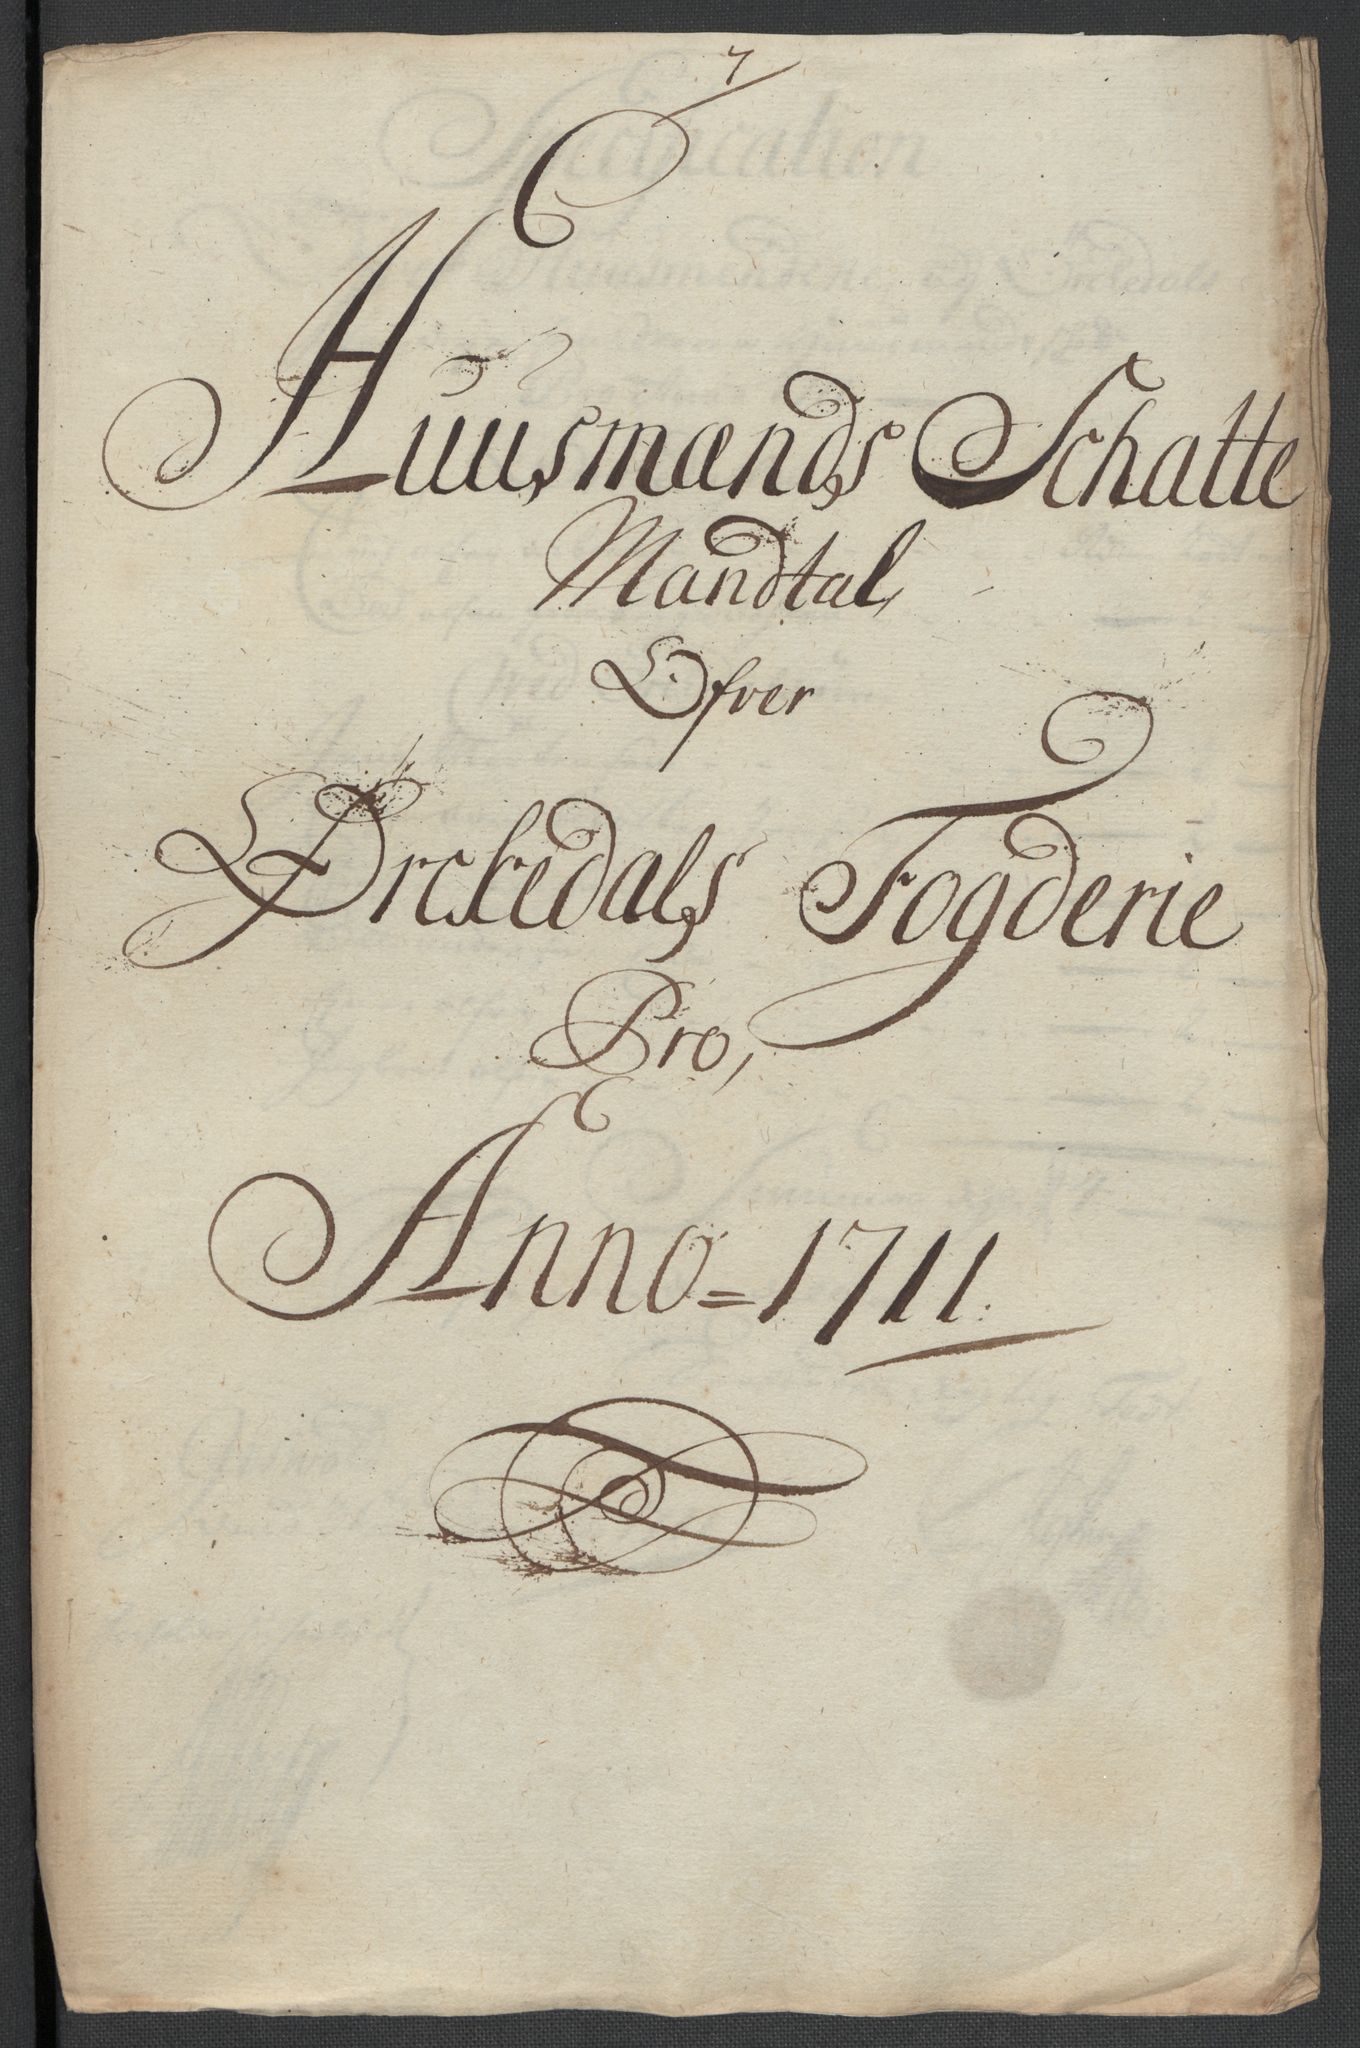 7
Huusmænds Schatte
Mandtal,
Ofver
Orckedals Fogderie
Pro,
Anno = 1711.